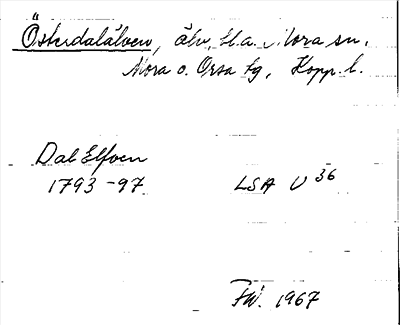 Österdalälven, älv, bl.a. Mora sn,
Mora o. Orsa tg, Kopp. l.
Dal Elfven
1793-97
LSA U 36
FW. 1967